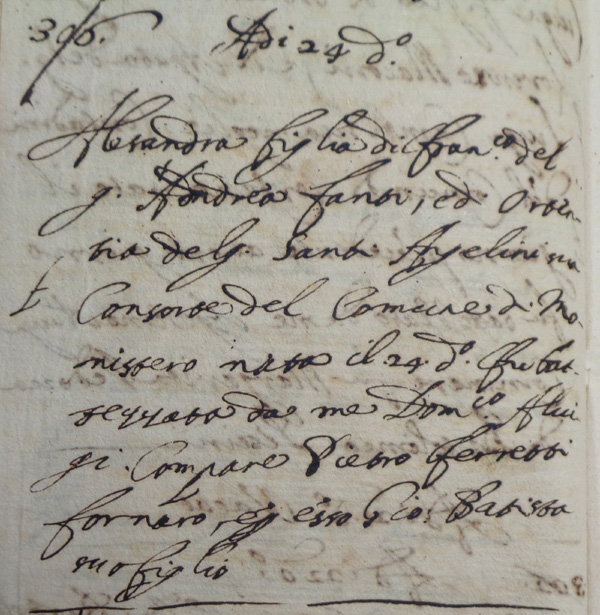 306. Adi 24 d.o
Alesandra figlia di Fran.co del
q. Andrea Fanti, ed Orten-
tia del q. Santi Agelini sua
Consorte del Comune di Mo-
nistero nata il 24 d.o fu bat-
tezzata da me Dom.co Alui
gi. Compare Pietro Ferretti
fornaro, e p esso Gio: Batista
suo figlio